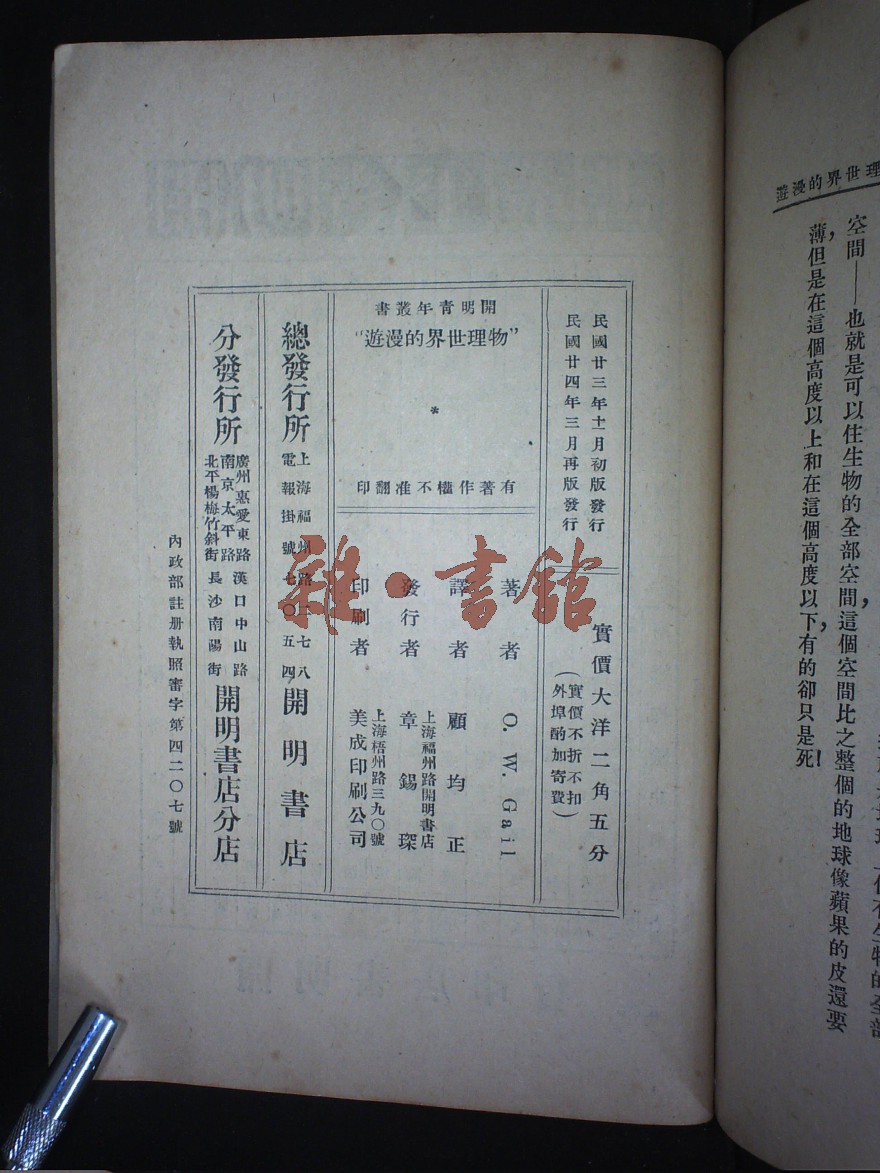 理世界的漫遊
空間——也就是可以住生物的全部空間，這個空間比之整個的地球像蘋果的皮還要
薄，但是在這個高度以上和在這個高度以下，有的卻只是死！
民國廿三年十一月初版發行
民國廿四年三月再版發行
實價大洋二角五分
（實價不折不扣
外埠酌加寄費）
開明青年叢書
“物理世界的漫遊”
*
有著作權不准翻印
著者 O. W. Gail
譯者 顧均正
發行者 上海福州路開明書店
章錫琛
印刷者 上海梧州路三九〇號
美成印刷公司
總發行所 上海福州路二七八
電報掛號七〇五四 開明書店
分發行所 廣州惠愛東路 漢口中山路
南京太平路
北平楊梅竹斜街 長沙南陽街 開明書店分店
內政部註册執照審字第四二〇七號
雜·書館